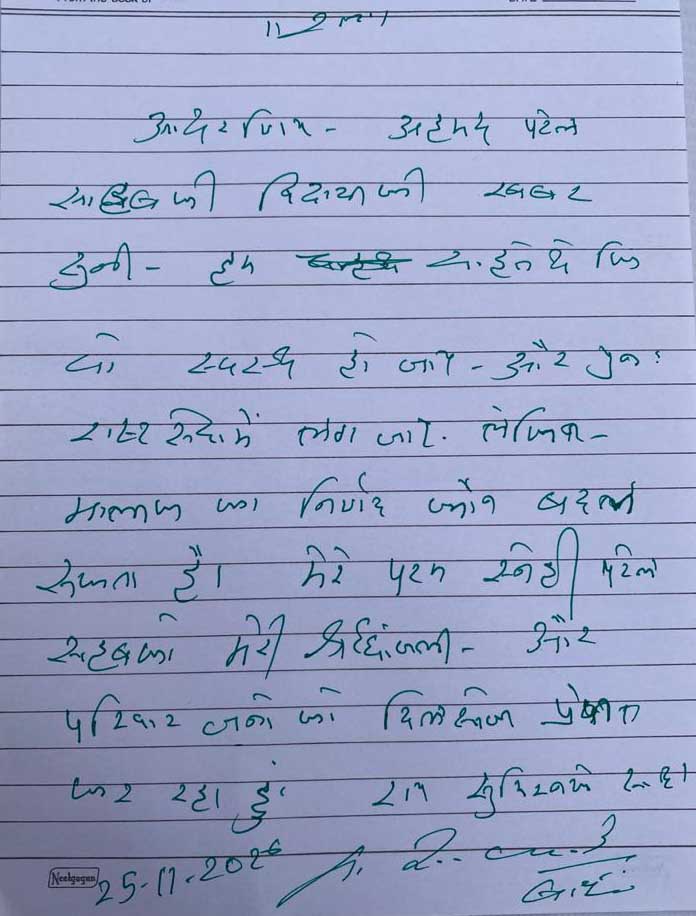 ॥ राम ॥
आदरणिय - अहमद पटेल
साहबकी विदायकी खबर
सुनी - हम चाहते थे कि
वो स्वस्थ हो जाए - और पुनः
राष्ट्र सेवामें लग जाए. लेकिन -
मालिक का निर्णय कौन बदल
सकता है। मेरे परम स्नेही पटेल
साहबको मेरी श्रद्धांजली - और
परिवार जनो को दिलसोजी
कर रहा हुं. राम सुमिरनके साथ।
Neelgagan 25-11-2020